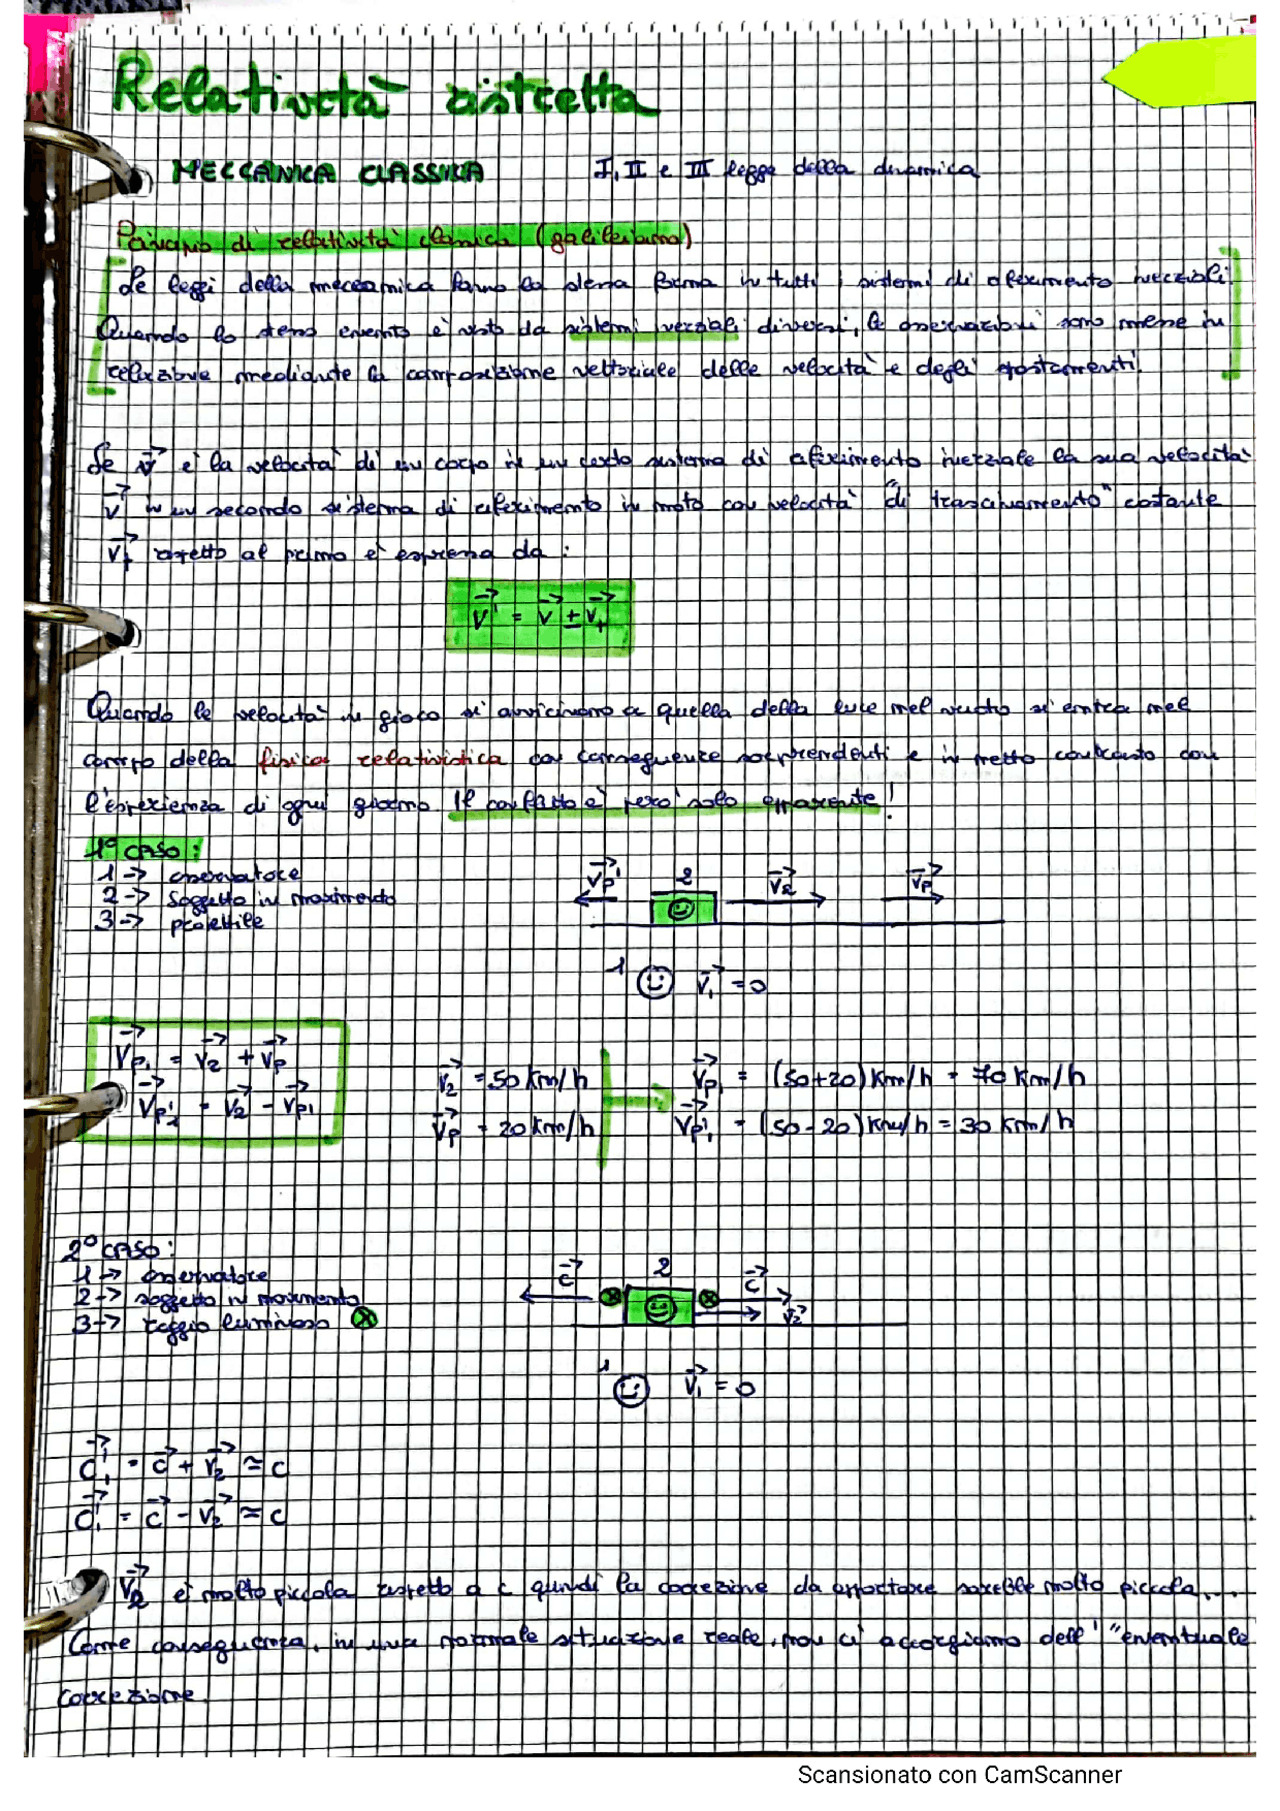 Relatività ristretta
MECCANICA CLASSICA I, II e III legge della dinamica
Principio di relatività classica (galileiano)
Le leggi della meccanica hanno la stessa forma in tutti i sistemi di riferimento inerziali.
Quando lo stesso evento è visto da sistemi inerziali diversi, le osservazioni sono messe in
relazione mediante la composizione vettoriale delle velocità e degli spostamenti.
Se v⃗ è la velocità di un corpo in un certo sistema di riferimento inerziale la sua velocità
v⃗' in un secondo sistema di riferimento in moto con velocità "di trascinamento" costante
v⃗t rispetto al primo è espressa da:
v⃗' = v⃗ ± v⃗t
Quando le velocità in gioco si avvicinano a quella della luce nel vuoto si entra nel
campo della fisica relativistica con conseguenze sorprendenti e in netto contrasto con
l'esperienza di ogni giorno. Il conflitto è però solo apparente!
1° CASO:
1 -> osservatore
2 -> soggetto in movimento
3 -> proiettile
v⃗p' 2 v⃗2 v⃗p
1 v⃗1 = 0
v⃗p1 = v⃗2 + v⃗p
v⃗p'2 = v⃗2 - v⃗p1
v⃗2 = 50 km/h
v⃗p = 20 km/h
v⃗p1 = (50+20) km/h = 70 km/h
v⃗p'1 = (50-20) km/h = 30 km/h
2° CASO:
1 -> osservatore
2 -> soggetto in movimento
3 -> raggio luminoso ⊗
c⃗ 2 c⃗
v⃗2
1 v⃗1 = 0
c⃗'1 = c⃗ + v⃗2 ≃ c
c⃗'1 = c⃗ - v⃗2 ≃ c
v⃗2 è molto piccola rispetto a c quindi la correzione da apportare sarebbe molto piccola...
Come conseguenza, in una normale situazione reale, non ci accorgiamo dell'"eventuale
correzione.
Scansionato con CamScanner